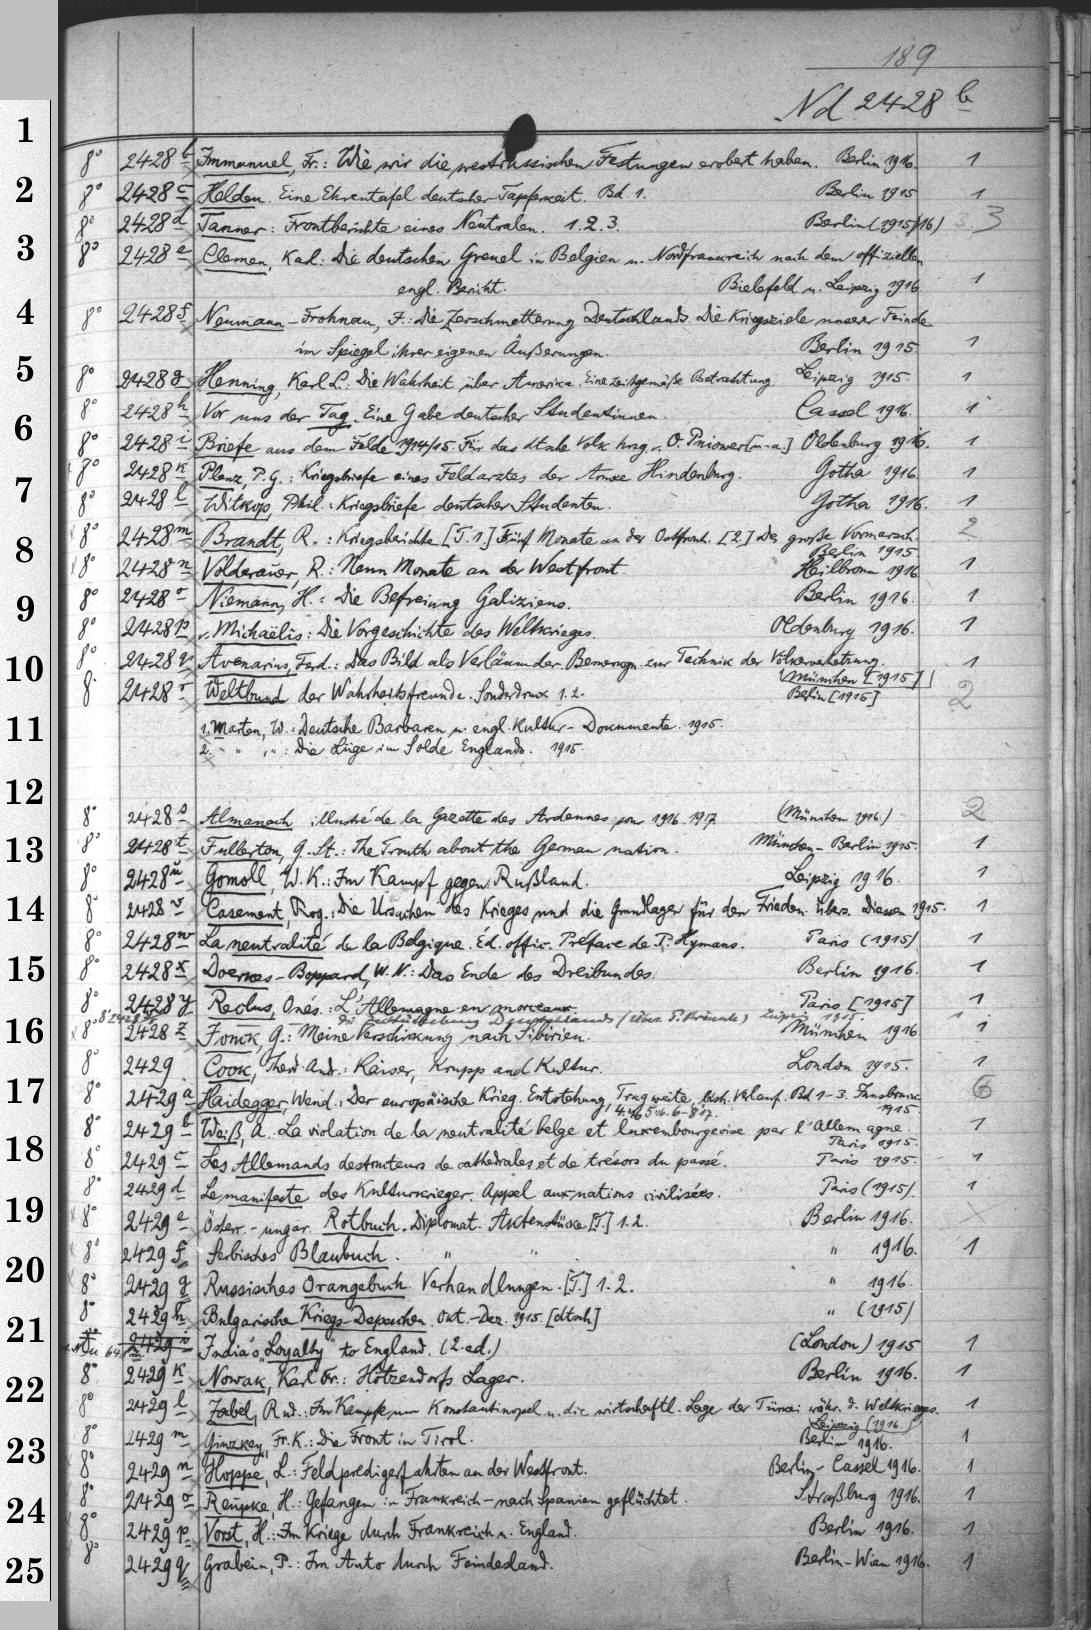 189
Nd 2428 b
1
8° 2428 b Immanuel, Fr.: Wie wir die westrussischen Festungen erobert haben. Berlin 1916. 1
2
8° 2428 c Helden. Eine Ehrentafel deutscher Tapferkeit. Bd. 1. Berlin 1915 1
8° 2428 d Tanner: Frontberichte eines Neutralen. 1.2.3. Berlin (1915/16) 3. 3
3
8° 2428 e Clemen, Karl: Die deutschen Greuel in Belgien u. Nordfrankreich nach dem offiziellen
engl. Bericht. Bielefeld u. Leipzig 1916. 1
4
8° 2428 f Neumann-Frohnau, J.: Die Zerschmetterung Deutschlands. Die Kriegsziele unserer Feinde
im Spiegel ihrer eigenen Äußerungen. Berlin 1915 1
5
8° 2428 g Henning, Karl L.: Die Wahrheit über Amerika. Eine zeitgemäße Betrachtung. Leipzig 1915. 1
8° 2428 h Vor uns der Tag. Eine Gabe deutscher Studentinnen. Cassel 1916. 1
6
8° 2428 i Briefe aus dem Felde 1914/15. Für das dtsche Volk hrsg. v. O. Pniower [u. a.] Oldenburg 1916. 1
8° 2428 k Plenz, P.G.: Kriegsbriefe eines Feldarztes der Armee Hindenburg. Gotha 1916. 1
7
8° 2428 l Witkop, Phil.: Kriegsbriefe deutscher Studenten. Gotha 1916. 1
8° 2428 m Brandt, R.: Kriegsberichte [T.1.] Fünf Monate an der Ostfront. [2.] Der große Vormarsch. 2
Berlin 1915
8
8° 2428 n Volderauer, R.: Neun Monate an der Westfront. Heilbronn 1916. 1
9
8° 2428 o Niemann, H.: Die Befreiung Galiziens. Berlin 1916. 1
8° 2428 p v. Michaëlis: Die Vorgeschichte des Weltkrieges. Oldenburg 1916. 1
10
8° 2428 q Avenarius, Ferd.: Das Bild als Verläumder. Bemerkgn. zur Technik der Völkerverhetzung. 1
München [1915]
8° 2428 r Weltbund der Wahrheitsfreunde. Sonderdruck 1.2. Berlin [1915] 2
11
1. Marten, W.: Deutsche Barbaren u. engl. Kultur-Documente. 1915.
2. " " ,": Die Lüge im Solde Englands. 1915.
12
8° 2428 s Almanach illustré de la Gazette des Ardennes pour 1916. 1917 (München 1916.) 2
13
8° 2428 t Fullerton, G. St.: The Truth about the German nation. München-Berlin 1915. 1
8° 2428 u Gomoll, W. K.: Im Kampf gegen Rußland. Leipzig 1916. 1
14
8° 2428 v Casement, Rog.: Die Ursachen des Krieges und die Grundlagen für den Frieden. übers. Diessen 1915. 1
8° 2428 w La neutralité de la Belgique. Éd. offic. Préface de P. Hymans. Paris (1915) 1
15
8° 2428 x Doerkes-Boppard, W. N.: Das Ende des Dreibundes. Berlin 1916. 1
8° 2428 y Reclus, Onés.: L'Allemagne en morceaux. Paris [1915] 1
8° 2428 Die Zerstückelung Deutschlands Leipzig 1915. 1
16
8° 2428 z Fonck, G.: Meine Verschickung nach Sibirien. München 1916 1
8° 2429 Cook, Theod. And.: Kaiser, Krupp and Kultur. London 1915. 1
17
8° 2429 a Haidegger, Wend.: Der europäische Krieg. Entstehung, Tragweite, bish. Verlauf. Bd 1-3. Innsbruck 6
1915
8° 2429 b Weiß, A. La violation de la neutralité belge et luxembourgeoise par l'Allemagne. 1
Paris 1915.
18
8° 2429 c Les Allemands destructeurs de cathédrales et de trésors du passé. Paris 1915. 1
8° 2429 d Le manifeste des Kulturkrieger. Appel aux nations civilisées. Paris (1915). 1
19
8° 2429 e Österr.-ungar. Rotbuch. Diplomat. Aktenstücke [T.] 1.2. Berlin 1916.
8° 2429 f Serbisches Blaubuch. " " " 1916. 1
20
8° 2429 g Russisches Orangebuch. Verhandlungen. [T.] 1.2. " 1916.
8° 2429 h Bulgarische Kriegs-Depeschen. Okt.-Dez. 1915. [dtsch] " (1915)
21
2429 i India's "Loyalty" to England. (2. ed.) (London) 1915 1
8° 2429 k Nowak, Karl Fr.: Hötzendorfs Lager. Berlin 1916. 1
22
8° 2429 l Zabel, Rud.: Im Kampfe um Konstantinopel u. die wirtschaftl. Lage der Türkei währ. d. Weltkrieges. 1
Leipzig (1916.)
8° 2429 m Ginzkey, Fr. K.: Die Front in Tirol. Berlin 1916. 1
23
8° 2429 n Hoppe, L.: Feldpredigerfahrten an der Westfront. Berlin-Cassel 1916. 1
24
8° 2429 o Reupke, H.: Gefangen in Frankreich - nach Spanien geflüchtet. Straßburg 1916. 1
8° 2429 p Vorst, H.: Im Kriege durch Frankreich u. England. Berlin 1916. 1
25
8° 2429 q Grabein, P.: Im Auto durch Feindesland. Berlin-Wien 1916. 1